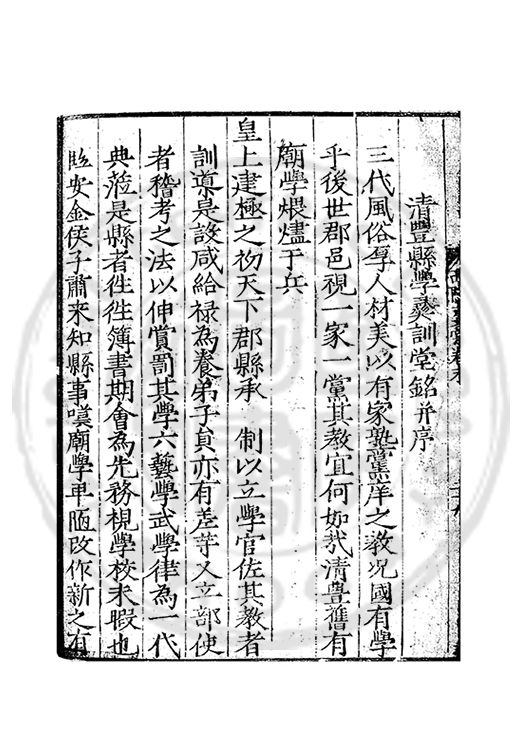 清豐縣學彝訓堂銘并序
三代風俗厚人材美以有家塾黨庠之教况國有學
乎後世郡邑視一家一黨其教宜何如哉清豊舊有
廟學煨燼于兵
皇上建極之初天下郡縣承 制以立學官佐其教者
訓導是設咸給禄為養弟子貟亦有差等又立部使
者稽考之法以伸賞罰其學六藝學武學律為一代
典蒞是縣者徃徃簿書期會為先務視學校未暇也
臨安金侯子肅来知縣事嘆廟學卑陋改作新之有